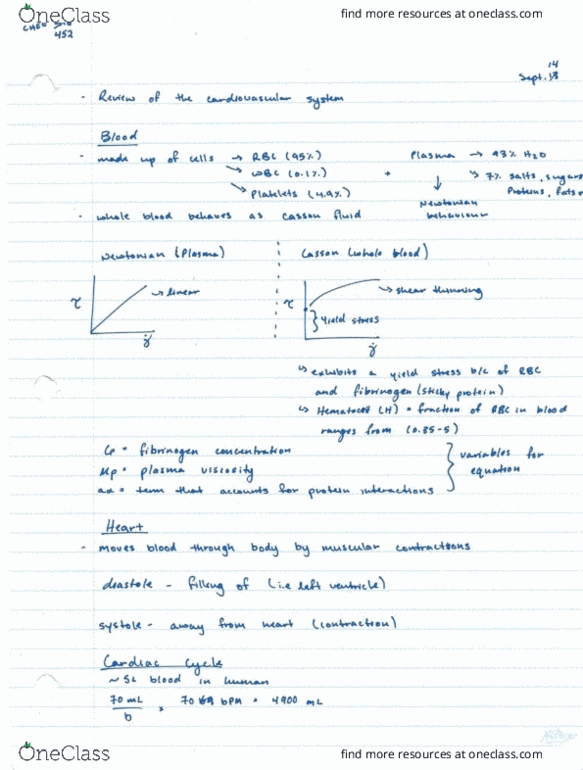 OneClass
find more resources at oneclass.com
452
14
Sept.
· Review of the cardiovascular system
Blood
· made up of cells → RBC (95%) Plasma → 93% H2O
→ WBC (0.1%) + ↳ 7% salts, sugars
→ Platelets (4.9%) ↓ Proteins, fats
Newtonian
behaviour
· whole blood behaves as casson fluid
Newtonian (Plasma) Casson (whole blood)
τ → linear τ → shear thinning
} yield stress
γ̇ γ̇
↳ exhibits a yield stress b/c of RBC
and fibrinogen (sticky protein)
↳ Hematocrit (H) = fraction of RBC in blood
ranges from (0.35-5)
= fibrinogen concentration
μp = plasma viscosity
= term that accounts for protein interactions
} variables for
equation
Heart
· moves blood through body by muscular contractions
diastole - filling of (i.e left ventricle)
systole - away from heart (contraction)
Cardiac Cycle
~ 5L blood in human
70 mL × 70 BPM = 4900 mL
b
OneClass
find more resources at oneclass.com